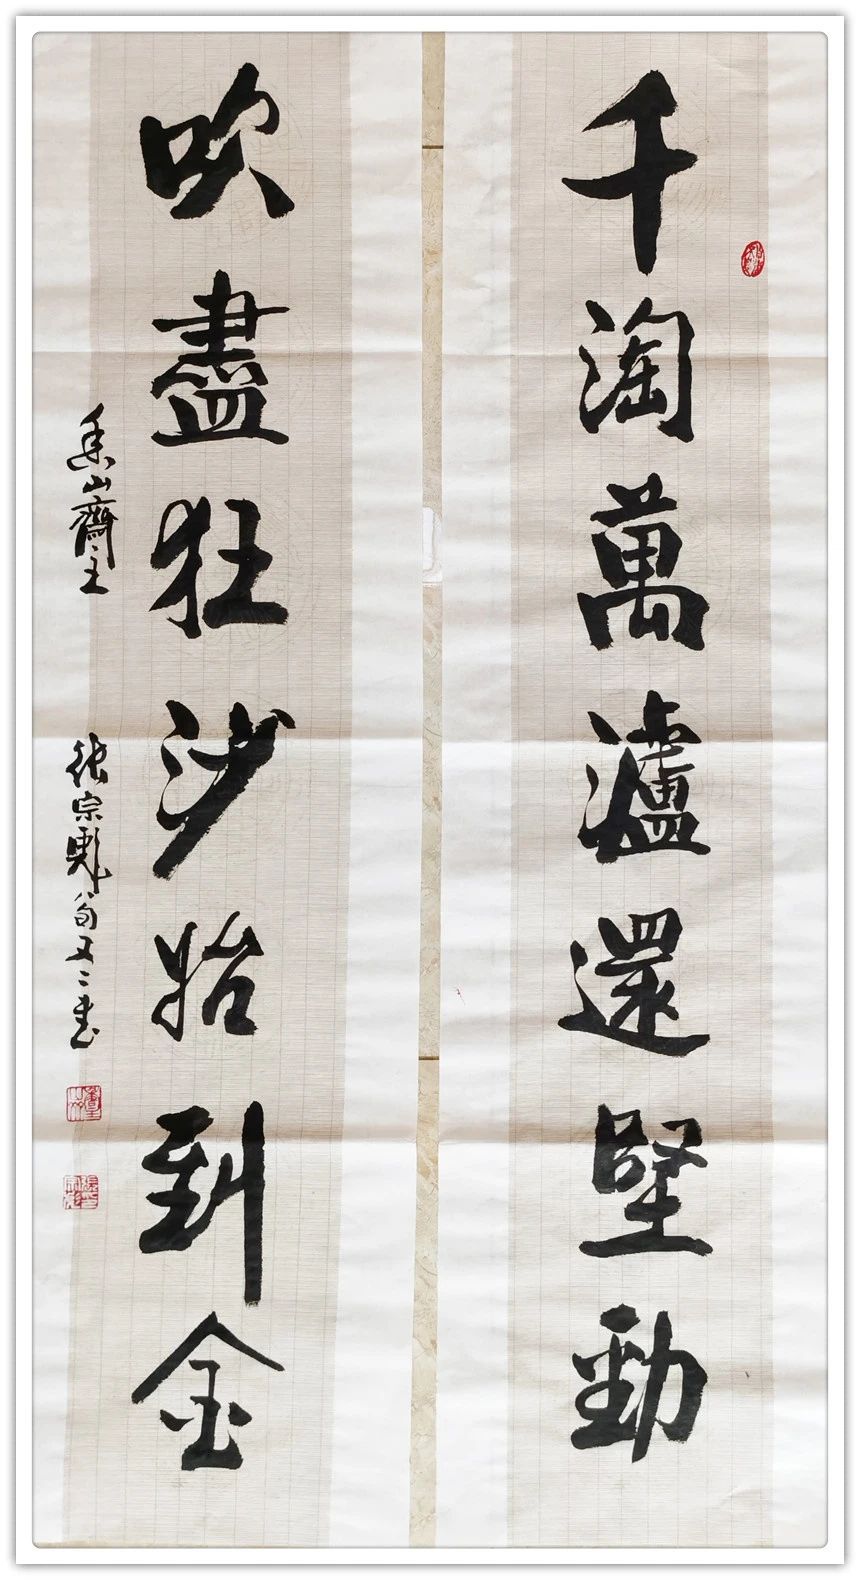 千淘萬瀘還堅勁
吹盡狂沙始到金
山齋主
張宗彪八旬又二書